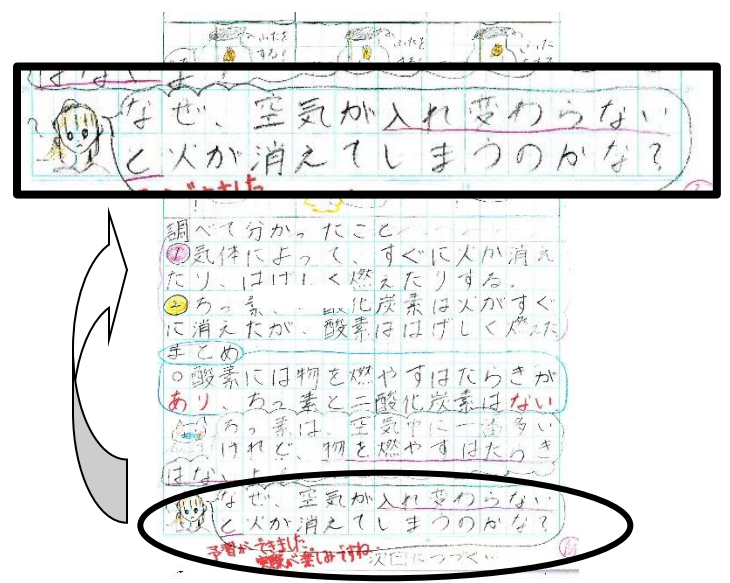 ふたを
する！
ふたを
なぜ、空気が入れ変わらない
と火が消えてしまうのかな？
調べて分かったこと
①気体によって、すぐに火が消え
たり、はげしく燃えたりする。
②ちっ素、 酸化炭素は火がすぐ
に消えたが、酸素ははげしく燃えた
まとめ
○酸素には物を燃やすはたらきが
あり、ちっ素と二酸化炭素はない
ちっ素は、空気中に一番多い
けれど、物を燃やすはたらき
はないよ！
なぜ、空気が入れ変わらない
と火が消えてしまうのかな？
予習ができました。
実験が楽しみですね。
次回につづく